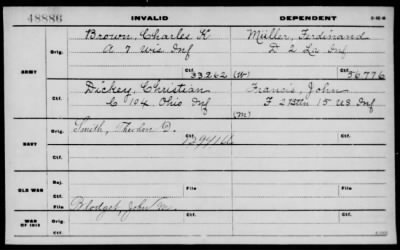 48886 INVALID DEPENDENT
Brown, Charles K Müller, Ferdinand
Orig. A 7 Wis Inf D 2 La Inf
ARMY Ctf. 33262 (W) Ctf. 56776
Dickey, Christian Francis, John
Ctf. C 104 Ohio Inf F 2 Battn 15 US Inf
(M)
Smith, Theodon D.
Orig. Ctf.
NAVY
Ctf.
OLD WAR Rej. File File
Ctf.
Blodget, John M.
WAR OF 1812 Orig. Ctf.
Ctf.